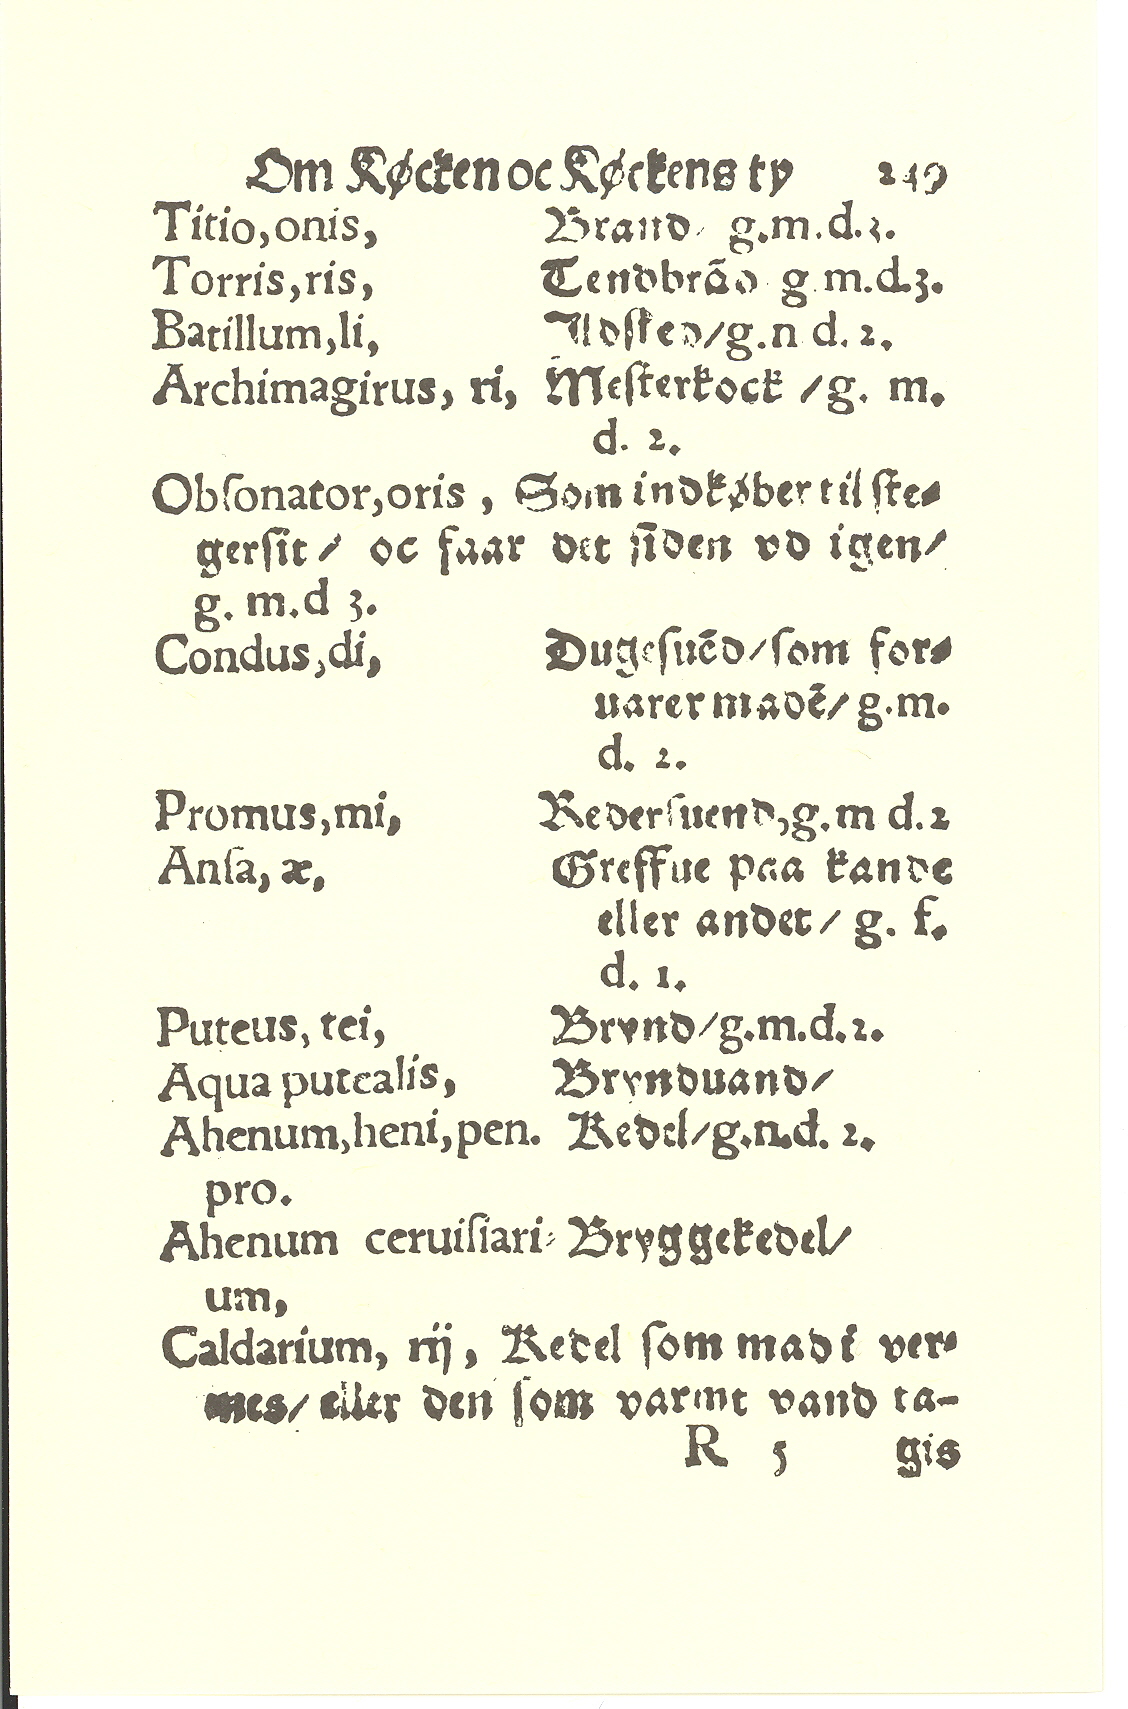 Om Køcken oc Køckens ty 249
Titio,onis, Brand/ g.m.d.3.
Torris,ris, Tendbrãd g.m.d.3.
Batillum,li, Ildsked/g.n d. 2.
Archimagirus, ri, Mesterkock /g. m.
d. 2.
Obſonator,oris , Som indkøber til ſte⸗
gerſit / oc faar det ſiden vd igen/
g. m.d 3.
Condus,di, Dugeſuẽd/ſom for⸗
uarer madẽ/ g.m.
d. 2.
Promus,mi, Rederſuend,g.m d.2
Anſa, æ, Greffue paa kande
eller andet/ g. f.
d. 1.
Puteus, tei, Brynd/g.m.d.2.
Aqua putealis, Bryndvand/
Ahenum,heni,pen. Kedel/g.n.d. 2.
pro.
Ahenum ceruiſiari⸗ Bryggekedel/
um,
Caldarium, rij, Kedel ſom mad i ver⸗
mes/ eller den ſom varmt vand ta-
R 5 gis